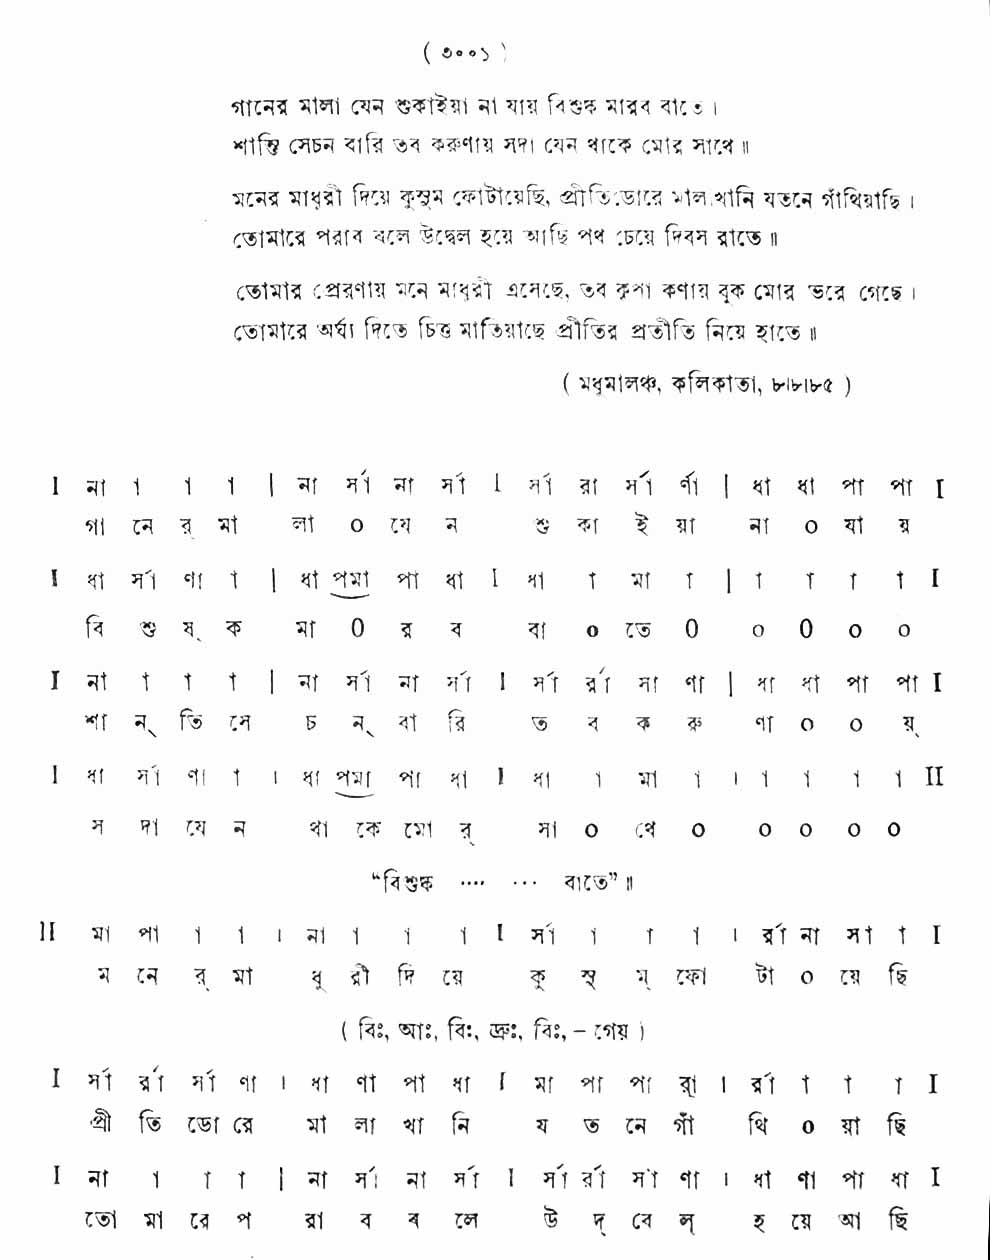 ( ৩০০১ )
গানের মালা যেন শুকাইয়া না যায় বিশুষ্ক মারব বাতে ।
শান্তি সেচন বারি তব করুণায় সদা যেন থাকে মোর সাথে ॥
মনের মাধুরী দিয়ে কুসুম ফোটায়েছি, প্রীতিডোরে মালাখানি যতনে গাঁথিয়াছি ।
তোমারে পরাব বলে উদ্বেল হয়ে আছি পথ চেয়ে দিবস রাতে ॥
তোমার প্রেরণায় মনে মাধুরী এসেছে, তব কৃপা কণায় বুক মোর ভরে গেছে ।
তোমারে অর্ঘ্য দিতে চিত্ত মাতিয়াছে প্রীতির প্রতীতি নিয়ে হাতে ॥
( মধুমালঞ্চ, কলিকাতা, ৮।৮।৮৫ )
I না া া া | না র্সা না র্সা I র্সা রা র্সা র্ণা | ধা ধা পা পা I
গা নে র্ মা লা ০ যে ন শু কা ই য়া না ০ যা য়
I ধা র্সা ণা া | ধা পমা পা ধা I ধা া মা া | া া া া I
বি শু ষ্ ক মা 0 র ব বা ০ তে 0 ০ 0 ০ ০
I না া া া | না র্সা না র্সা I র্সা র্রা সা ণা | ধা ধা পা পা I
শা ন্ তি সে চ ন্ বা রি ত ব ক রু ণা ০ ০ য়্
I ধা র্সা ণা া । ধা পমা পা ধা I ধা া মা া । া া া া II
স দা যে ন থা কে মো র্ সা ০ থে ০ ০ ০ ০ ০
“বিশুষ্ক .... ... বাতে” ॥
II মা পা া া । না া া া I র্সা া া া । র্রা না সা া I
ম নে র্ মা ধু রী দি য়ে কু সু ম্ ফো টা ০ য়ে ছি
( বিঃ, আঃ, বিঃ, দ্রুঃ, বিঃ, – গেয় )
I র্সা র্রা র্সা ণা । ধা ণা পা ধা I মা পা পা র্রা । র্রা া া া I
প্রী তি ডো রে মা লা খা নি য ত নে গাঁ থি ০ য়া ছি
I না া া া | না র্সা না র্সা I র্সা র্রা র্সা ণা । ধা ণা পা ধা I
তো মা রে প রা ব ব লে উ দ্ বে ল্ হ য়ে আ ছি